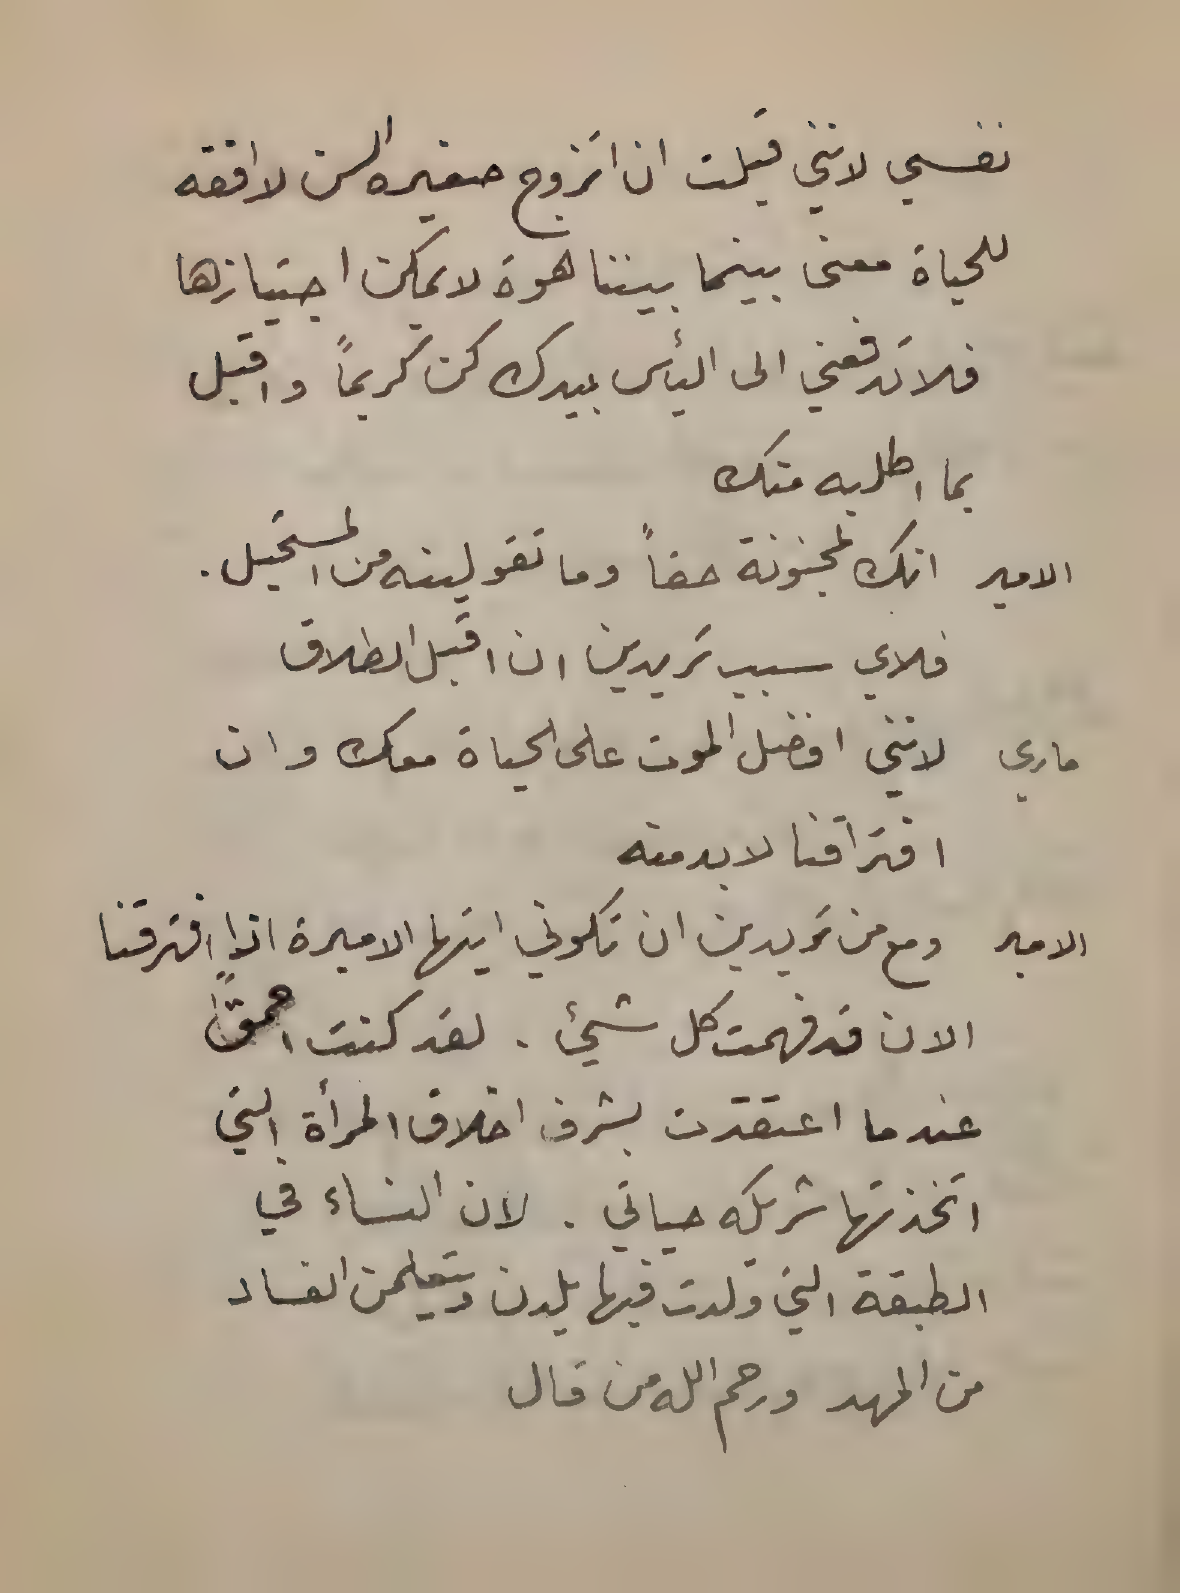 نفسي لانني قبلت ان اتزوج صغيره السن لا افقه
للحياة معنى بينما بيننا هوة لا يمكن اجتيازها
فلا تدفعني الى اليأس بيدك كن كريماً واقبل
بما اطلبه منك
الامير انك لمجنونة حقاً وما تقولينه من المستحيل .
فلاي سبب تريدين ان اقبل الطلاق
ماري لانني افضل الموت على الحياة معك وان
افتراقنا لا بد منه
الامير ومع من تريدين ان تكوني ايتها الاميرة اذا افترقنا
الان قد فهمت كل شيئ . لقد كنت احمقاً
عندما اعتقدت بشرف اخلاق المرأة التي
اتخذتها شريكه حياتي . لان النساء في
الطبقة التي ولدت فيها يلدن ويتعلمن الفساد
من المهد ورحم الله من قال